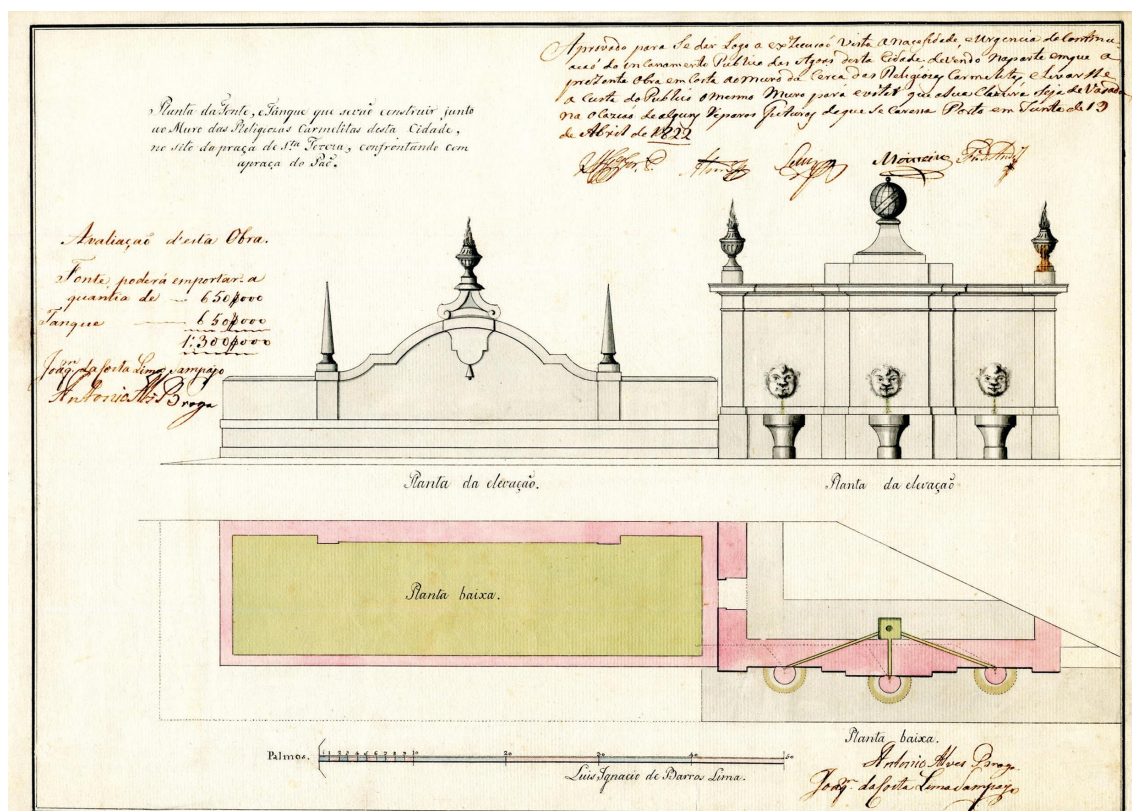 Planta da Fonte, e Tanque que se vão construir junto
ao Muro das Religiozas Carmelitas desta Cidade,
no sito da praça de Sta Tereza, confrontando com
apraça do Paõ.
Aprovado para Se dar Logo a execucaõ Vista a necesidade, e Urgencia de Continu-
acaõ do encanamento Publico das Agoas desta Cidade, devendo na parte em que a
prezente Obra encosta ao muro da Cerca das Religiozas Carmelitas, elevar-se
a Custa do Publico o mesmo Muro para evitar que a Sua Clauzura Seja devasada
de alguns Reparos futuros de que Se Careça Porto em Junta de 13
de Abril de 1822
Moreira
Avaliaçaõ d'esta Obra.
Fonte, poderá emportar-a
quantia de — 650$000
Tanque — 650$000
1:300$000
Joaqm. da Costa Lima Sampajo
Antonio Als. Braga
Planta da elevação.
Planta da elevaçaõ
Planta baixa.
Planta baixa.
Palmos.
1 2 3 4 5 6 7 8 9 10 20 30 40 50
Luis Ignacio de Barros Lima.
Antonio Alves Braga
Joaqm. da Costa Lima Sampajo